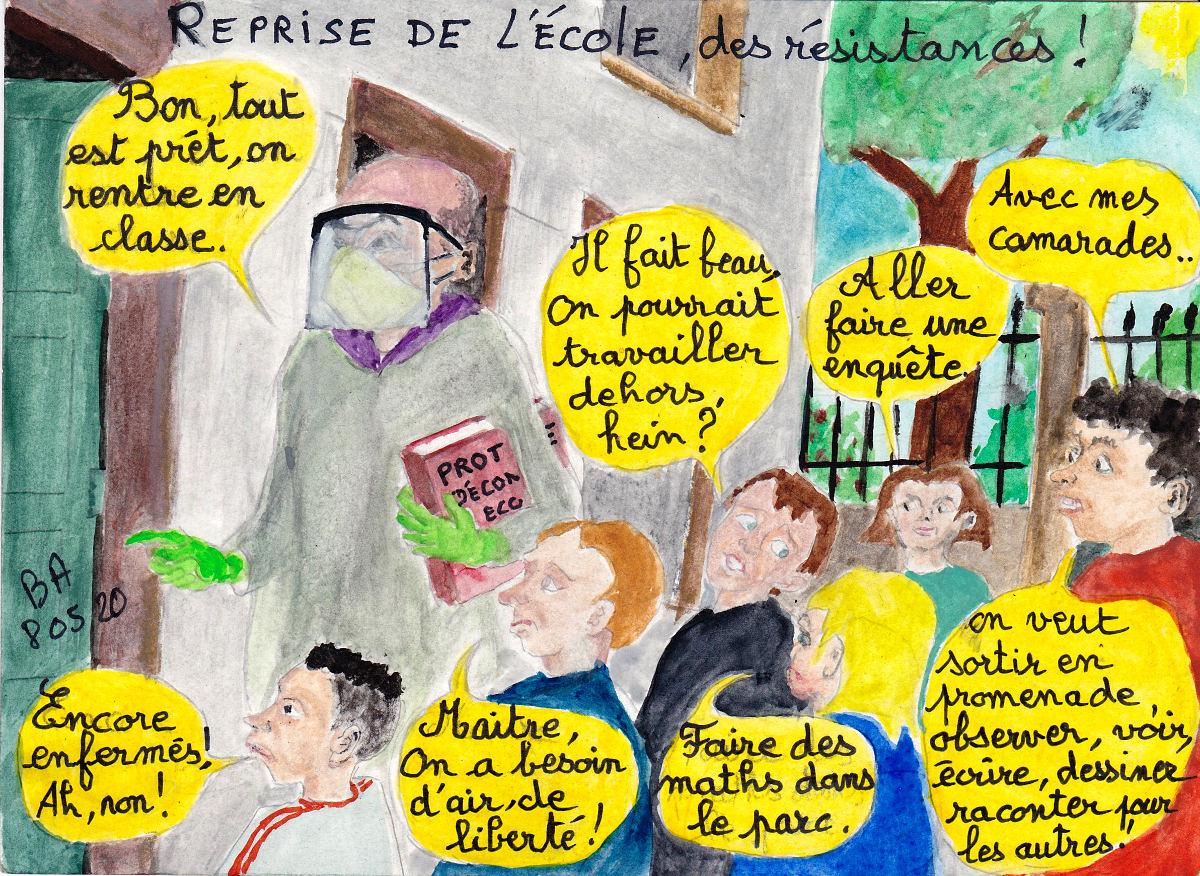 REPRISE DE L'ÉCOLE, des résistances !
Bon, tout
est prêt, on
rentre en
classe.
Il fait beau,
On pourrait
travailler
dehors,
hein ?
Aller
faire une
enquête.
Avec mes
camarades..
PROT
DÉCON
ECO
BA
8 05 20
Encore
enfermés,
Ah, non !
Maitre,
On a besoin
d'air, de
liberté !
Faire des
maths dans
le parc.
on veut
sortir en
promenade,
observer, voir,
écrire, dessiner
raconter pour
les autres !